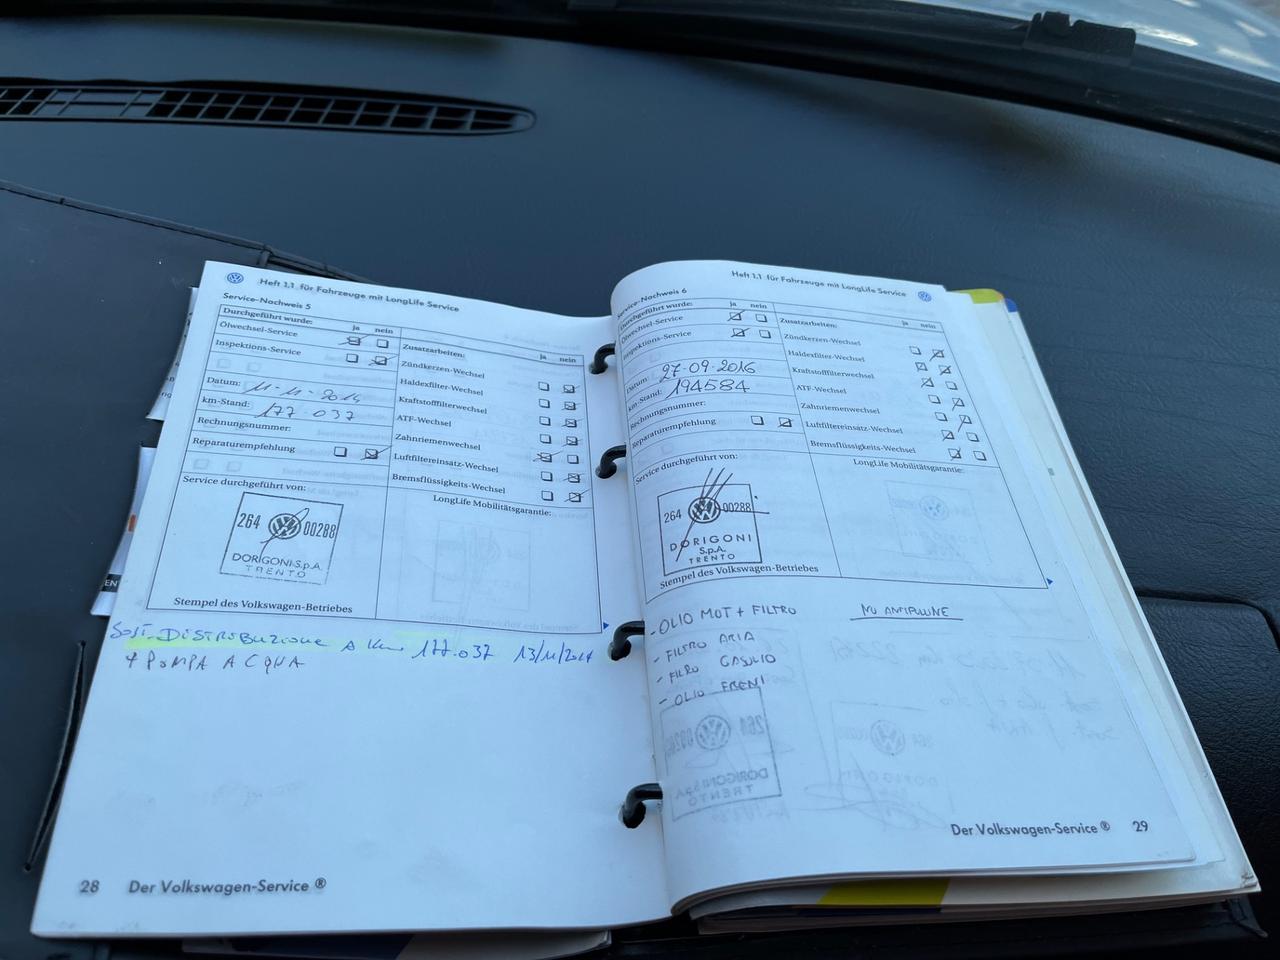 Heft 1.1 für Fahrzeuge mit LongLife Service
Service-Nachweis 5
Durchgeführt wurde:
ja nein
Ölwechsel-Service
Inspektions-Service
Datum: 11-11-2014
km-Stand: 177.037
Rechnungsnummer:
Reparaturempfehlung
Zusatzarbeiten:
ja nein
Zündkerzen-Wechsel
Haldexfilter-Wechsel
Kraftstofffilterwechsel
ATF-Wechsel
Zahnriemenwechsel
Luftfiltereinsatz-Wechsel
Bremsflüssigkeits-Wechsel
Service durchgeführt von:
LongLife Mobilitätsgarantie:
264 00288
DORIGONI S.p.A.
TRENTO
Stempel des Volkswagen-Betriebes
SOST. DISTRIBUZIONE A Km 177.037 13/11/2014
+ POMPA ACQUA
28 Der Volkswagen-Service ®
Heft 1.1 für Fahrzeuge mit LongLife Service
Service-Nachweis 6
Durchgeführt wurde:
ja nein
Ölwechsel-Service
Inspektions-Service
Datum: 27-09-2016
km-Stand: 194584
Rechnungsnummer:
Reparaturempfehlung
Zusatzarbeiten:
ja nein
Zündkerzen-Wechsel
Haldexfilter-Wechsel
Kraftstofffilterwechsel
ATF-Wechsel
Zahnriemenwechsel
Luftfiltereinsatz-Wechsel
Bremsflüssigkeits-Wechsel
Service durchgeführt von:
LongLife Mobilitätsgarantie:
264 00288
DORIGONI
S.p.A.
TRENTO
Stempel des Volkswagen-Betriebes
- OLIO MOT + FILTRO
NO ANTIPOLLINE
- FILTRO ARIA
- FILRO GASOLIO
- OLIO FRENI
Der Volkswagen-Service ® 29